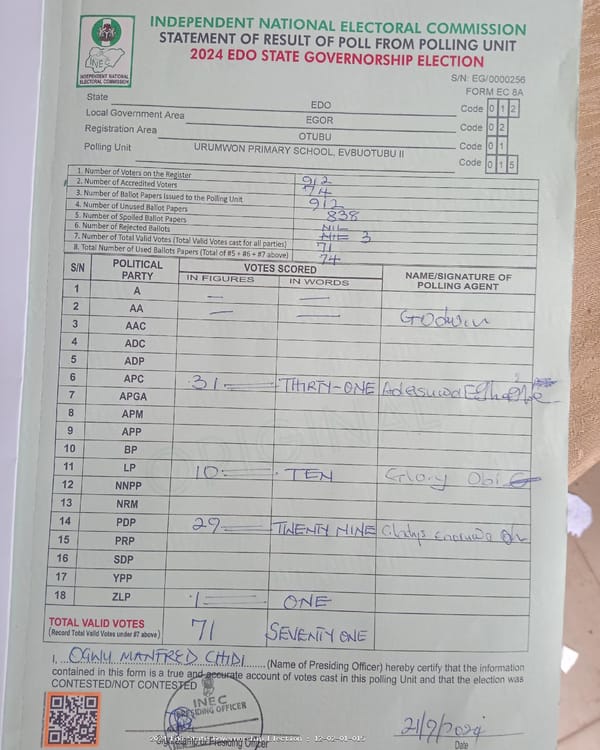 INDEPENDENT NATIONAL ELECTORAL COMMISSION
STATEMENT OF RESULT OF POLL FROM POLLING UNIT
2024 EDO STATE GOVERNORSHIP ELECTION
INEC
INDEPENDENT NATIONAL ELECTORAL COMMISSION
S/N: EG/0000256
FORM EC 8A
State EDO Code 0 1 2
Local Government Area EGOR Code 0 2
Registration Area OTUBU Code 0 1
Polling Unit URUMWON PRIMARY SCHOOL, EVBUOTUBU II Code 0 1 5
1. Number of Voters on the Register 912
2. Number of Accredited Voters 74
3. Number of Ballot Papers Issued to the Polling Unit 912
4. Number of Unused Ballot Papers 838
5. Number of Spoiled Ballot Papers NIL
6. Number of Rejected Ballots NIL 3
7. Number of Total Valid Votes (Total Valid Votes cast for all parties) 71
8. Total Number of Used Ballots Papers (Total of #5 + #6 + #7 above) 74
S/N POLITICAL PARTY VOTES SCORED NAME/SIGNATURE OF POLLING AGENT
IN FIGURES IN WORDS
1 A — —
2 AA — — Godwin
3 AAC
4 ADC
5 ADP
6 APC 31 THIRTY-ONE Adesuwa
7 APGA
8 APM
9 APP
10 BP
11 LP 10 TEN Glory Obi
12 NNPP
13 NRM
14 PDP 29 TWENTY NINE Gladys
15 PRP
16 SDP
17 YPP
18 ZLP 1 ONE
TOTAL VALID VOTES 71 SEVENTY ONE
(Record Total Valid Votes under #7 above)
ORIGINAL
I, OGWU MANFRED CHIDI (Name of Presiding Officer) hereby certify that the information
contained in this form is a true and accurate account of votes cast in this polling Unit and that the election was
CONTESTED/NOT CONTESTED
INEC
PRESIDING OFFICER
21/9/2024
2024 Edo State Governorship Election : 12-02-01-015
Presiding Officer
Date